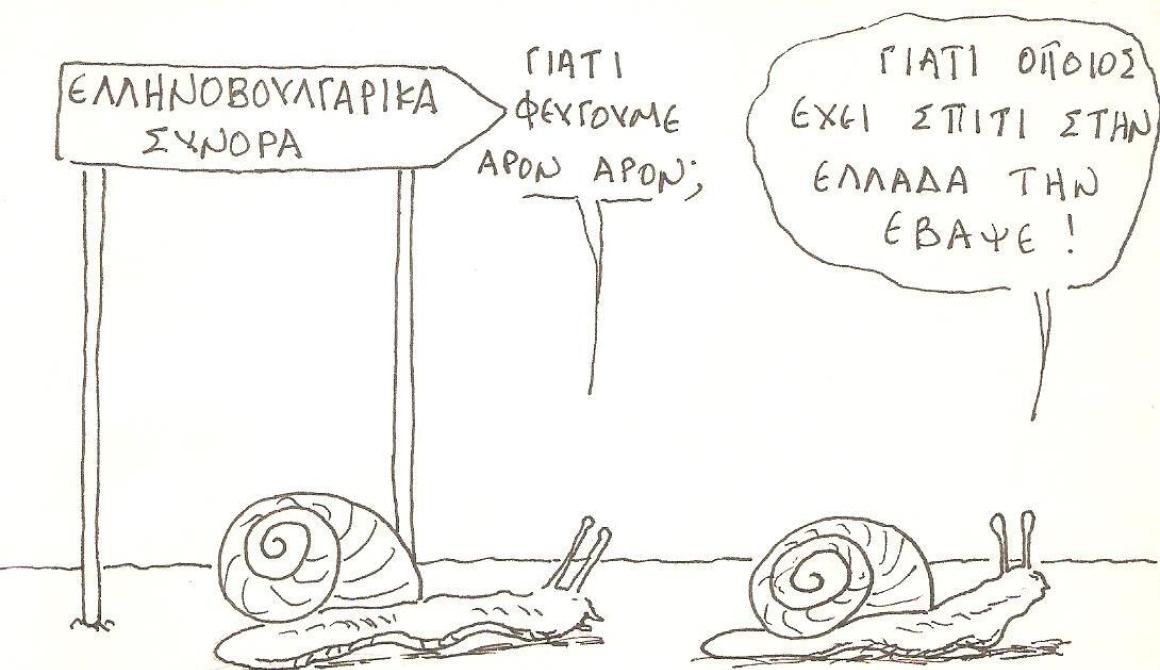 ΕΛΛΗΝΟΒΟΥΛΓΑΡΙΚΑ
ΣΥΝΟΡΑ
ΓΙΑΤΙ
ΦΕΥΓΟΥΜΕ
ΑΡΟΝ ΑΡΟΝ;
ΓΙΑΤΙ ΟΠΟΙΟΣ
ΕΧΕΙ ΣΠΙΤΙ ΣΤΗΝ
ΕΛΛΑΔΑ ΤΗΝ
ΕΒΑΨΕ !